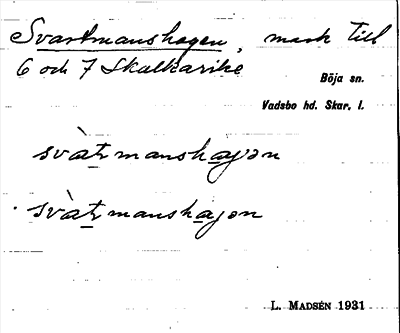 Svartmanshagen, mark till
6 och 7 Skattkarike
Böja sn.
Vadsbo hd. Skar. l.
svàtmanshagən
svàtmanshagən
L. MADSÉN 1931